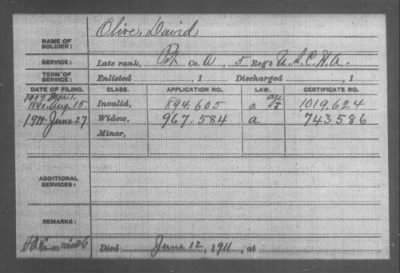 NAME OF SOLDIER: Olive, David
SERVICE: Late rank, Pvt Co. A, 5 Reg't U.S.C.H.A.
TERM OF SERVICE: Enlisted , 1 Discharged , 1
DATE OF FILING. CLASS. APPLICATION NO. LAW. CERTIFICATE NO.
1890. Aug. 15. Invalid, 894.605 a 1019.624
1911 June 27 Widow, 967.584 a 743586
Minor,
ADDITIONAL SERVICES:
REMARKS:
Died June 12, 1911, at